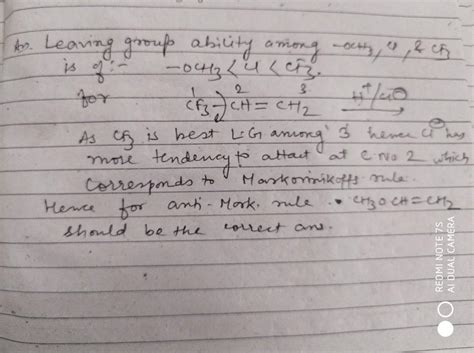 Ans. Leaving group ability among -OCH3, Cl, & CF3
is of :- -OCH3 < Cl < CF3.
for 1 2 3
CF3-CH=CH2 H+/Cl⊖
As CF3 is best L.G. among 3 hence Cl⊖ has
more tendency to attact at C-No 2 which
corresponds to Markovnikoffs rule.
Hence for anti-Mark. rule . CH3OCH=CH2
should be the correct ans.
REDMI NOTE 7S
AI DUAL CAMERA